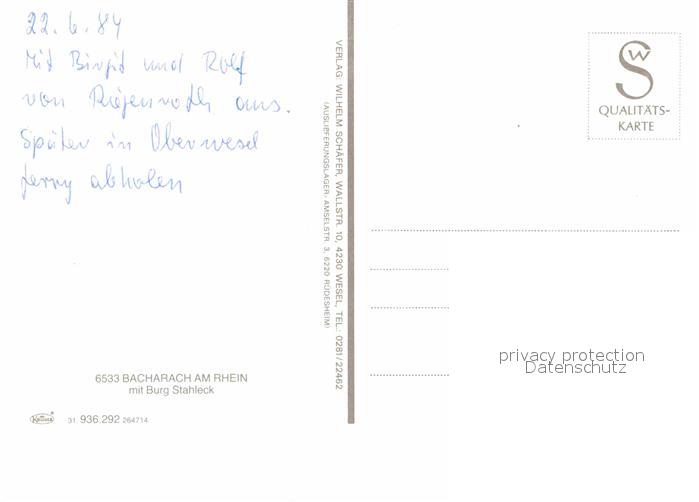 22.6.84
Mit Birgit und Rolf
von Riegenroth aus.
Später in Oberwesel
Jenny abholen
6533 BACHARACH AM RHEIN
mit Burg Stahleck
Krüger 31 936.292 264714
VERLAG: WILHELM SCHÄFER, WALLSTR. 10, 4230 WESEL, TEL.: 0281/22462
(AUSLIEFERUNGSLAGER: AMSELSTR. 3, 6220 RÜDESHEIM)
SW
QUALITÄTS-
KARTE
privacy protection
Datenschutz